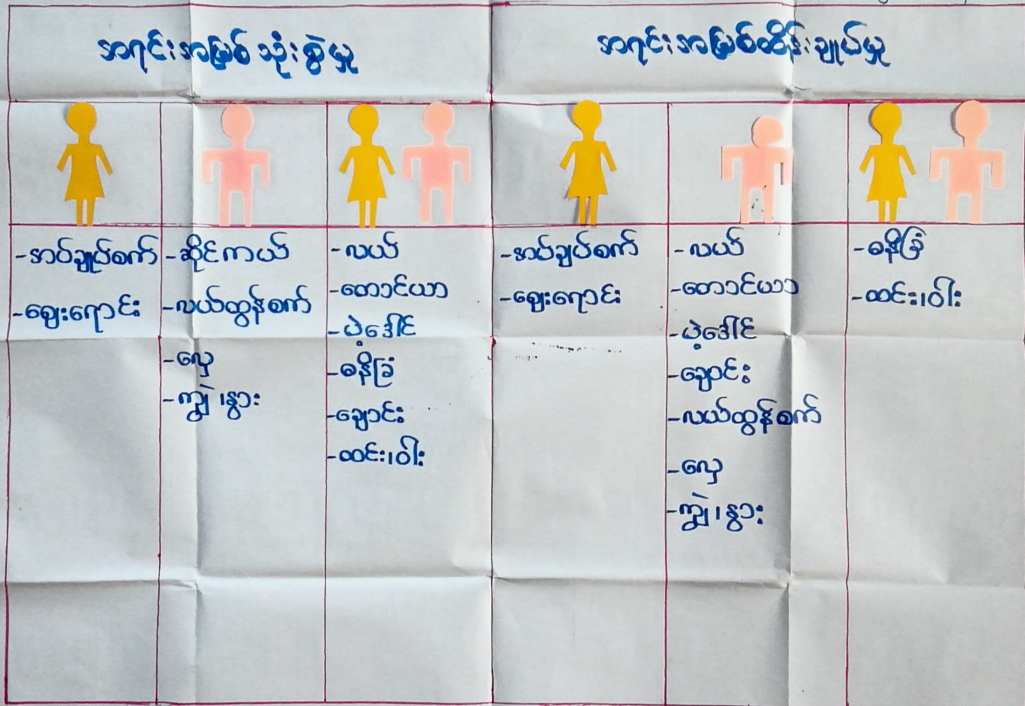 အရင်းအမြစ်သုံးစွဲမှု
အရင်းအမြစ်ထိန်းချုပ်မှု
-အပ်ချုပ်စက်
-ဈေးရောင်း
-ဆိုင်ကယ်
-လယ်ထွန်စက်
-လှေ
-ကျွဲ၊နွား
-လယ်
-တောင်ယာ
-ပဲ့ဒေါင်
-ဓနိခြံ
-ချောင်း
-ထင်း၊ဝါး
-အပ်ချုပ်စက်
-ဈေးရောင်း
-လယ်
-တောင်ယာ
-ပဲ့ဒေါင်
-ချောင်း
-လယ်ထွန်စက်
-လှေ
-ကျွဲ၊နွား
-ဓနိခြံ
-ထင်း၊ဝါး